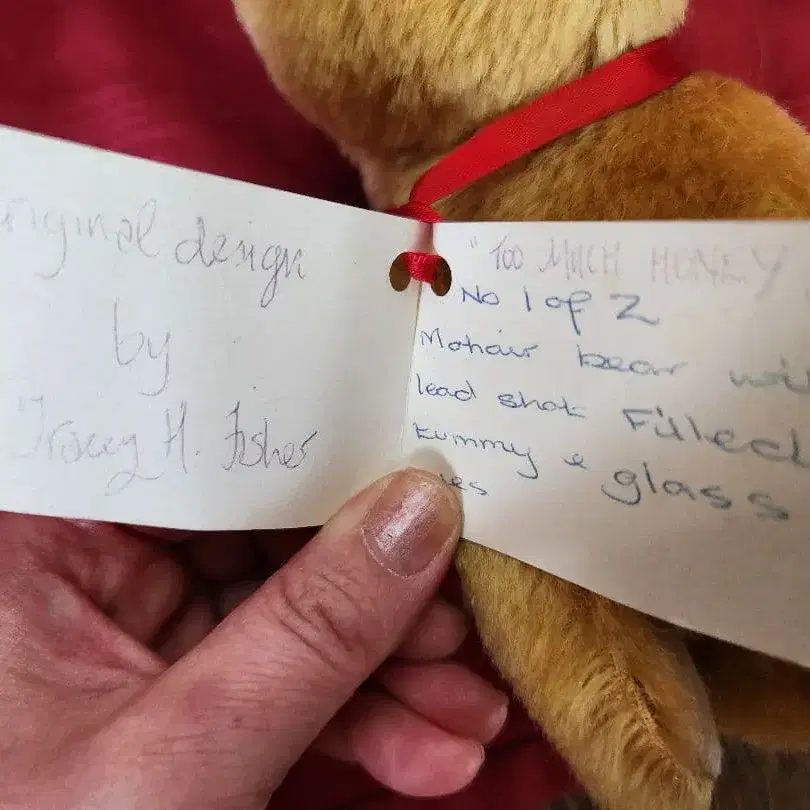 original design
by
Tracey H. Fisher
"TOO MUCH HONEY
No 1 of 2
Mohair bear wi
lead shot Filled
tummy & glass
es